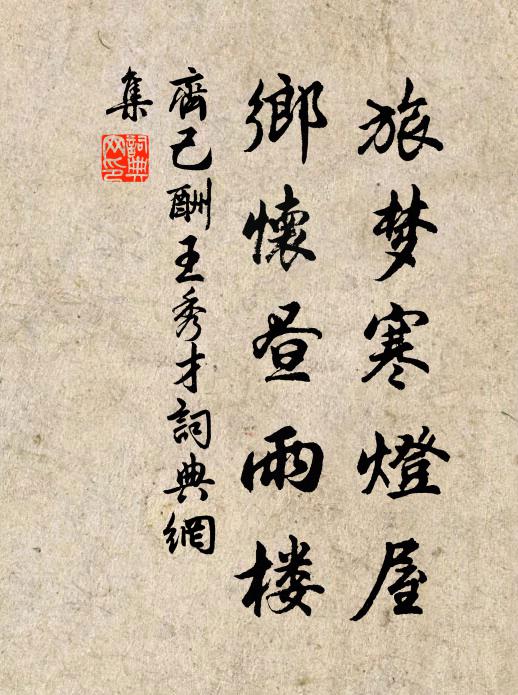 旅梦寒燈屋
鄉懷昼雨楼
齊己酬王秀才詞典網
集
詞典
网印